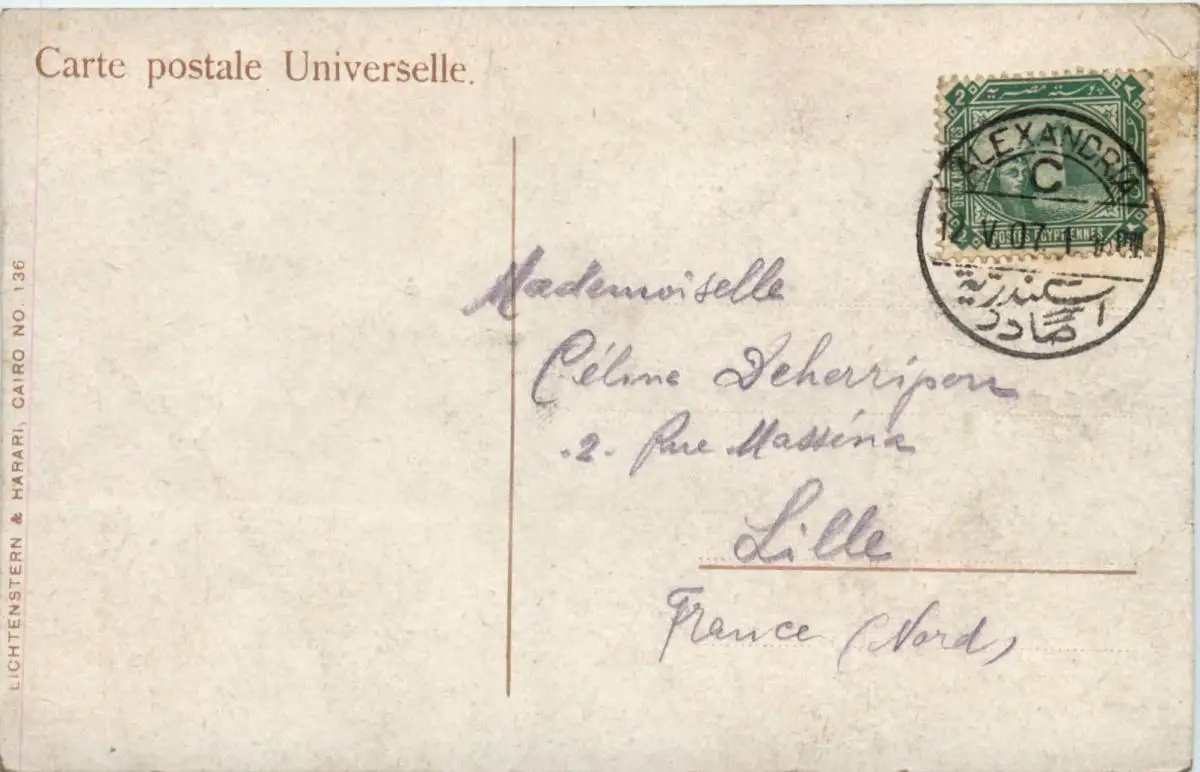 Carte postale Universelle.
2 بوسته مصرية ٢
ALEXANDRIA
C
12 V 07 1
POSTES EGYPTIENNES
اسكندرية
Mademoiselle
Céline Deherripon
.2. Rue Masséna
Lille
France (Nord)
LICHTENSTERN & HARARI, CAIRO NO. 136